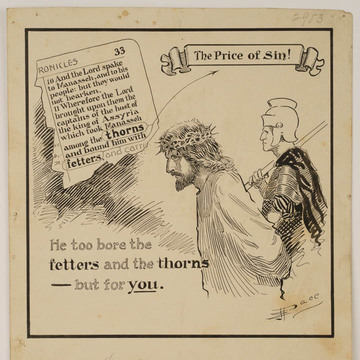 2983
33
RONICLES
10 And the Lord spake
to Manasseh, and to his
people: but they would
not hearken.
11 Wherefore the Lord
brought upon them the
captains of the host of
the king of Assyria
which took Manasseh
among the thorns
and bound him with
fetters, and carri
The Price of Sin!
He too bore the
fetters and the thorns
— but for you.
Pace